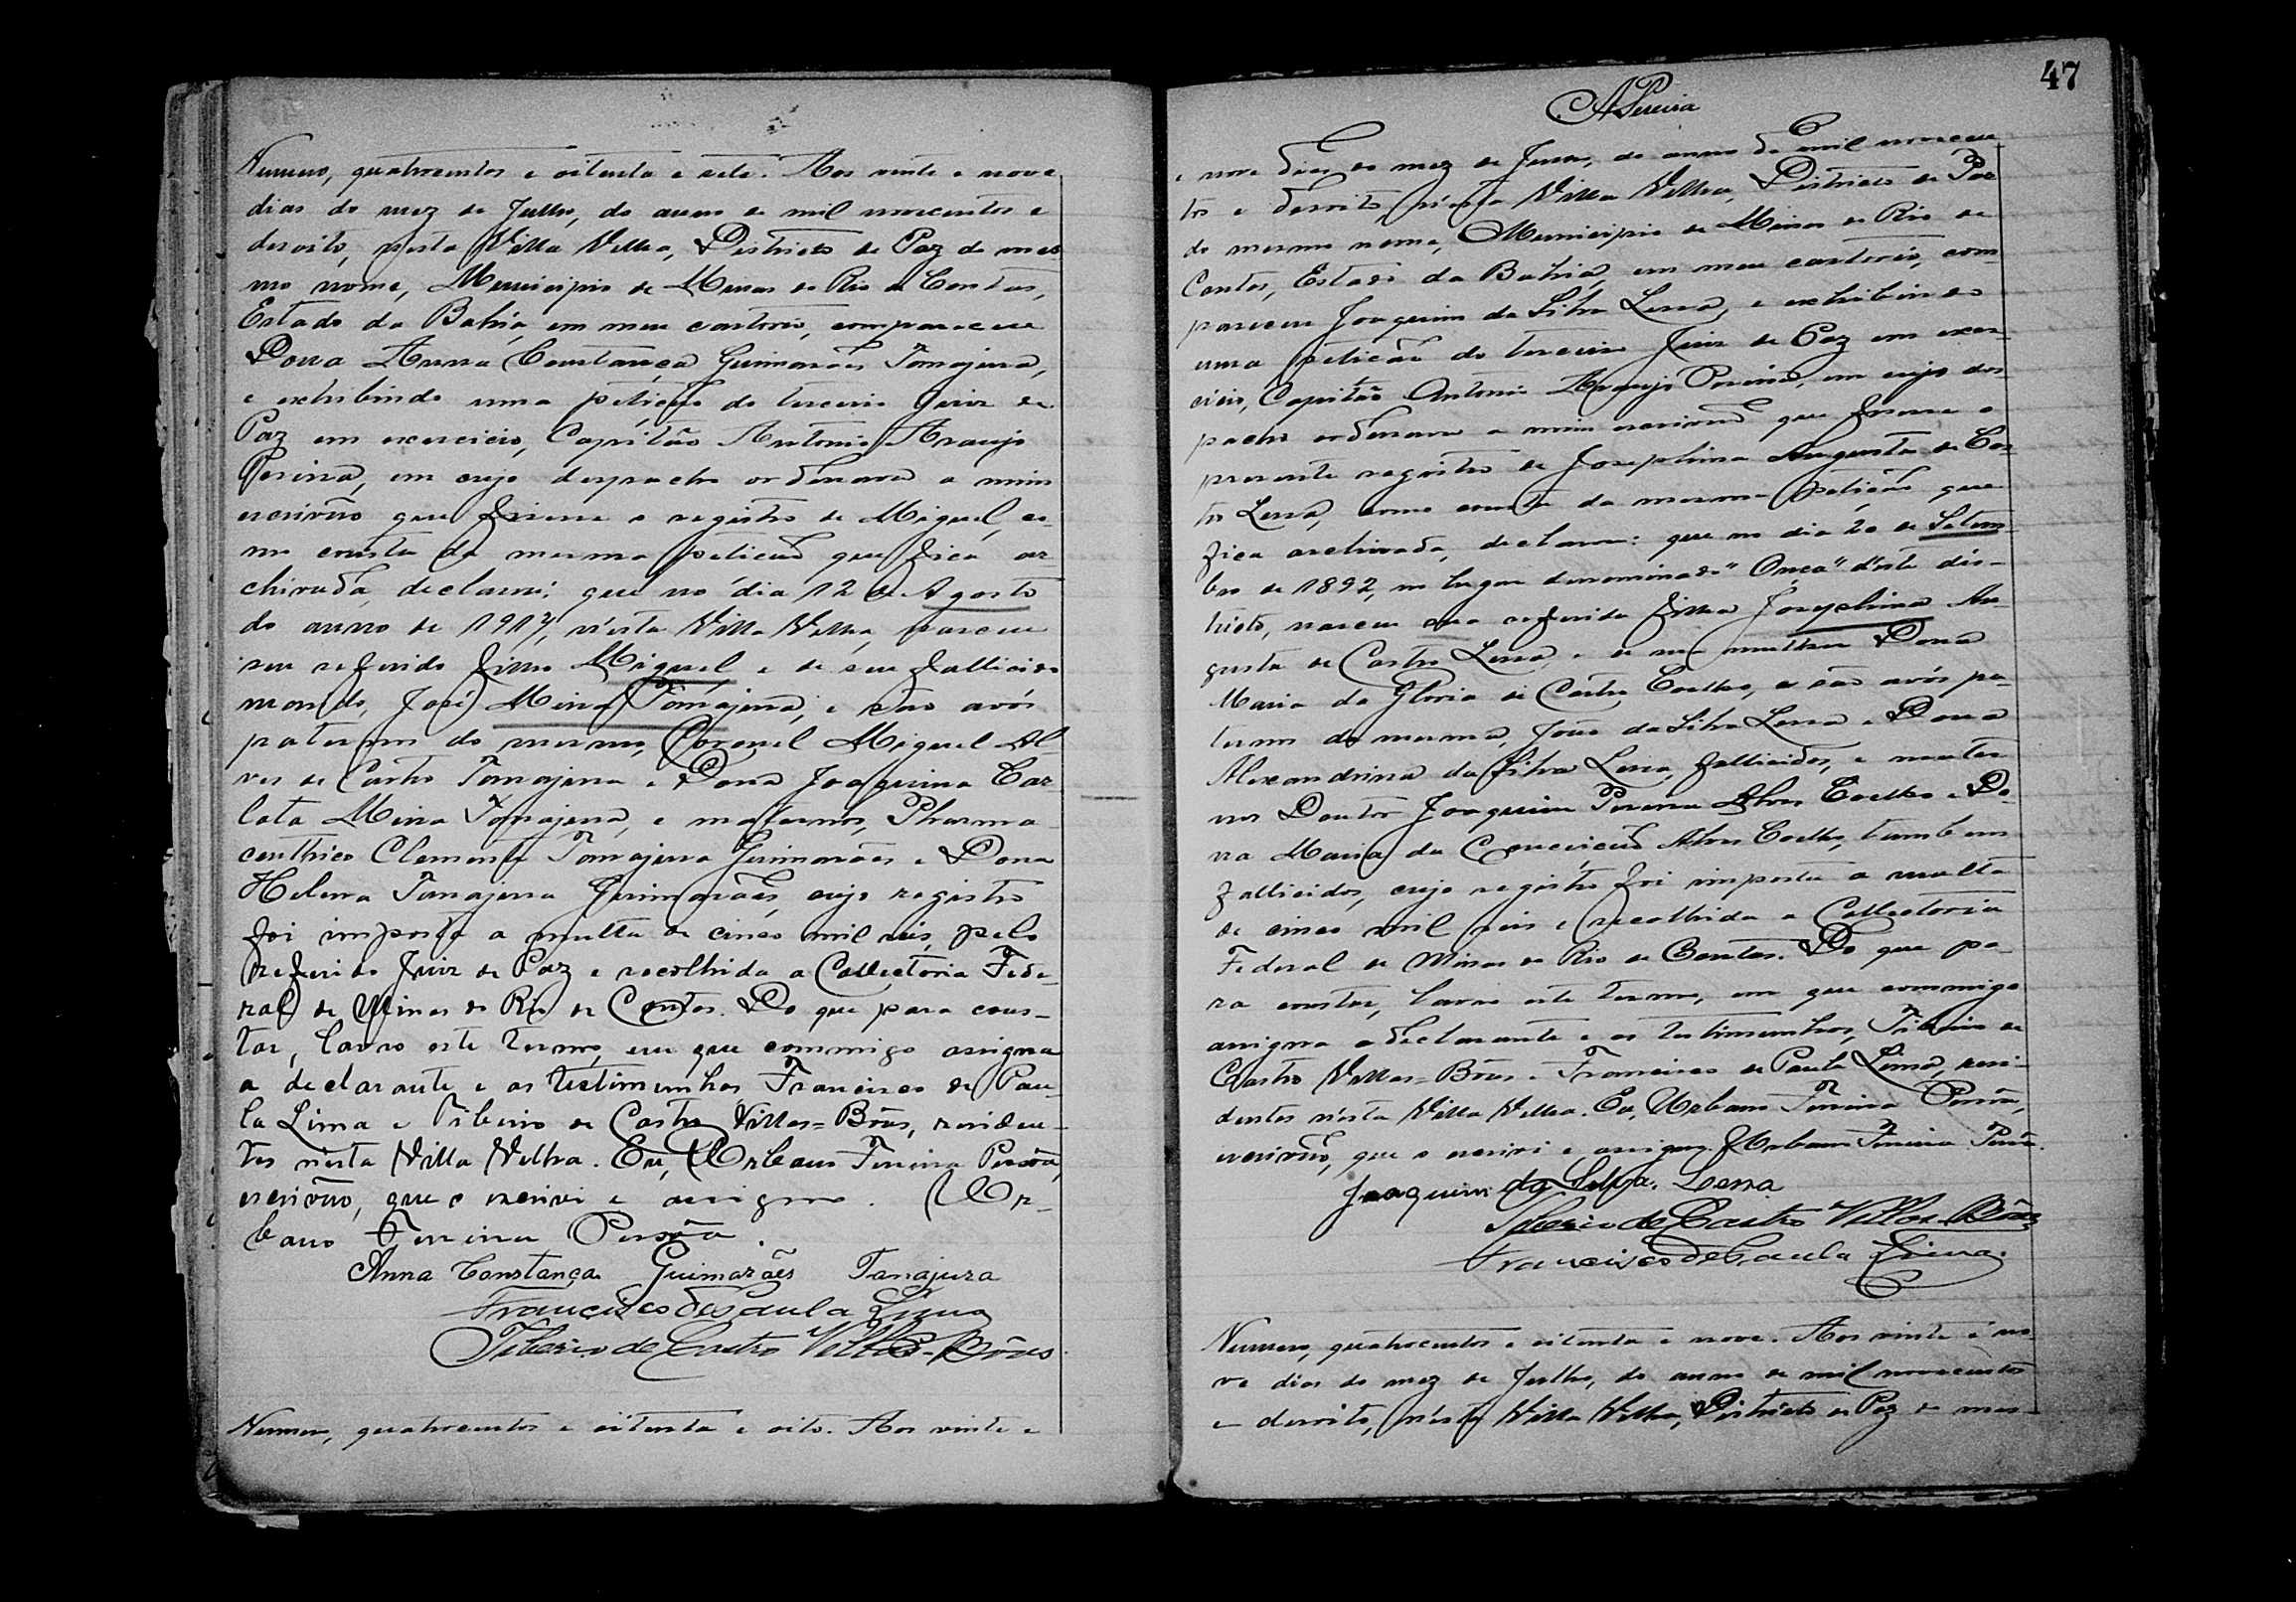 Numero, quatrocentos e oitenta e sete. Aos vinte e nove
dias do mez de Julho, do anno de mil novecentos e
desoito, nesta Villa Velha, Districto de Paz do mes
mo nome, Municipio de Minas do Rio de Contas,
Estado da Bahia, em meu cartorio, compareceu
Dona Anna Constança Guimarães Tanajura,
e exhibindo uma petição do terceiro Juiz de
Paz em exercicio, Capitão Antonio Araujo
Pereira, em cujo despacho ordenava a mim
escrivão que fizesse o registro de Miguel, co-
mo consta da mesma petição que fica ar
chivada, declarou: que no dia 12 de Agosto
do anno de 1917, n'esta Villa Velha, nasceu
seu referido filho Miguel e de seu fallecido
marido, José Meira Tanajura, e são avós
paternos do mesmo, Coronel Miguel Al
ves de Castro Tanajura e Dona Joaquina Car
lota Meira Tanajura, e maternos, Pharma
ceuthico Clemente Tanajura Guimarães e Dona
Helena Tanajura Guimarães, cujo registro
foi imposta a multa de cinco mil reis, pelo
referido Juiz de Paz e recolhida a Collectoria Fede-
ral de Minas do Rio de Contas. Do que para cons-
tar, lavro este termo, em que commigo assigna
a declarante e as testimunhas Francisco de Pau-
la Lima e Tiberio de Castro Villas-Bôas, residen-
tes n'esta Villa Velha. Eu, Urbano Ferreira Pessôa,
escrivão, que o escrivi e assigno. Ur-
bano Ferreira Pessôa.
Anna Constança Guimarães Tanajura
Francisco de Paula Lima
Tiberio de Castro Villas-Bôas
Numero, quatrocentos e oitenta e oito. Aos vinte e
47
APereira
e nove dias do mez de do anno de mil novecen
tos e desoito, n'esta Villa Velha, Districto de Paz
do mesmo nome, Municipio de Minas do Rio de
Contas, Estado da Bahia, em meu cartorio, com-
pareceu Joaquim da Silva Lessa, e exhibindo
uma petição do terceiro Juiz de Paz em exer-
cicio, Capitão Antonio Araujo Pereira, em cujo des-
pacho ordenava a mim escrivão que fizesse o
presente registro de Josephina Augusta de Cas-
tro Lessa, como consta da mesma petição, que
fica archivada, declarou: que no dia 20 de Setem-
bro de 1892, no lugar denominado "Onça" d'este dis-
tricto, nasceu sua referida filha Josephina Au-
gusta de Castro Lessa, e de sua mulher Dona
Maria da Gloria de Castro Coelho, e são avós pa-
ternos da mesma, João da Silva Lessa e Dona
Alexandrina da Silva Lessa, fallecidos, e mater
nos Doutor Joaquim Pereira Alves Coelho e Do-
na Maria da Conceição Alves Coelho, tambem
fallecidos, cujo registro foi imposta a multa
de cinco mil reis e recolhida a Collectoria
Federal de Minas do Rio de Contas. Do que pa-
ra constar, lavro este termo, em que commigo
assigna o declarante e as testimunhas, Tiberio de
Castro Villas-Bôas e Francisco de Paula Lima, resi-
dentes n'esta Villa Velha. Eu, Urbano Ferreira Pessôa,
escrivão, que o escrivi e assigno. Urbano Ferreira Pessôa.
Joaquim da Silva Lessa
Tiberio de Castro Villas-Bôas
Francisco de Paula Lima.
Numero, quatrocentos e oitenta e nove. Aos vinte e no-
ve dias do mez de Julho, do anno de mil novecentos
e desoito, n'esta Villa Velha, Districto de Paz do mes-